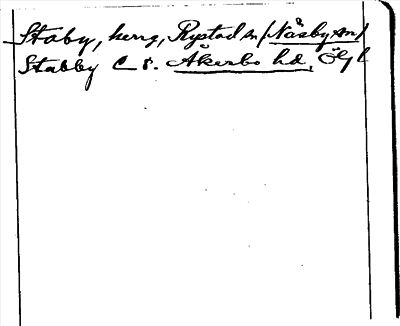 Staby, herrg, Rystad sn (Näsby sn)
Stabby C s. Åkerbo hd. Ögl